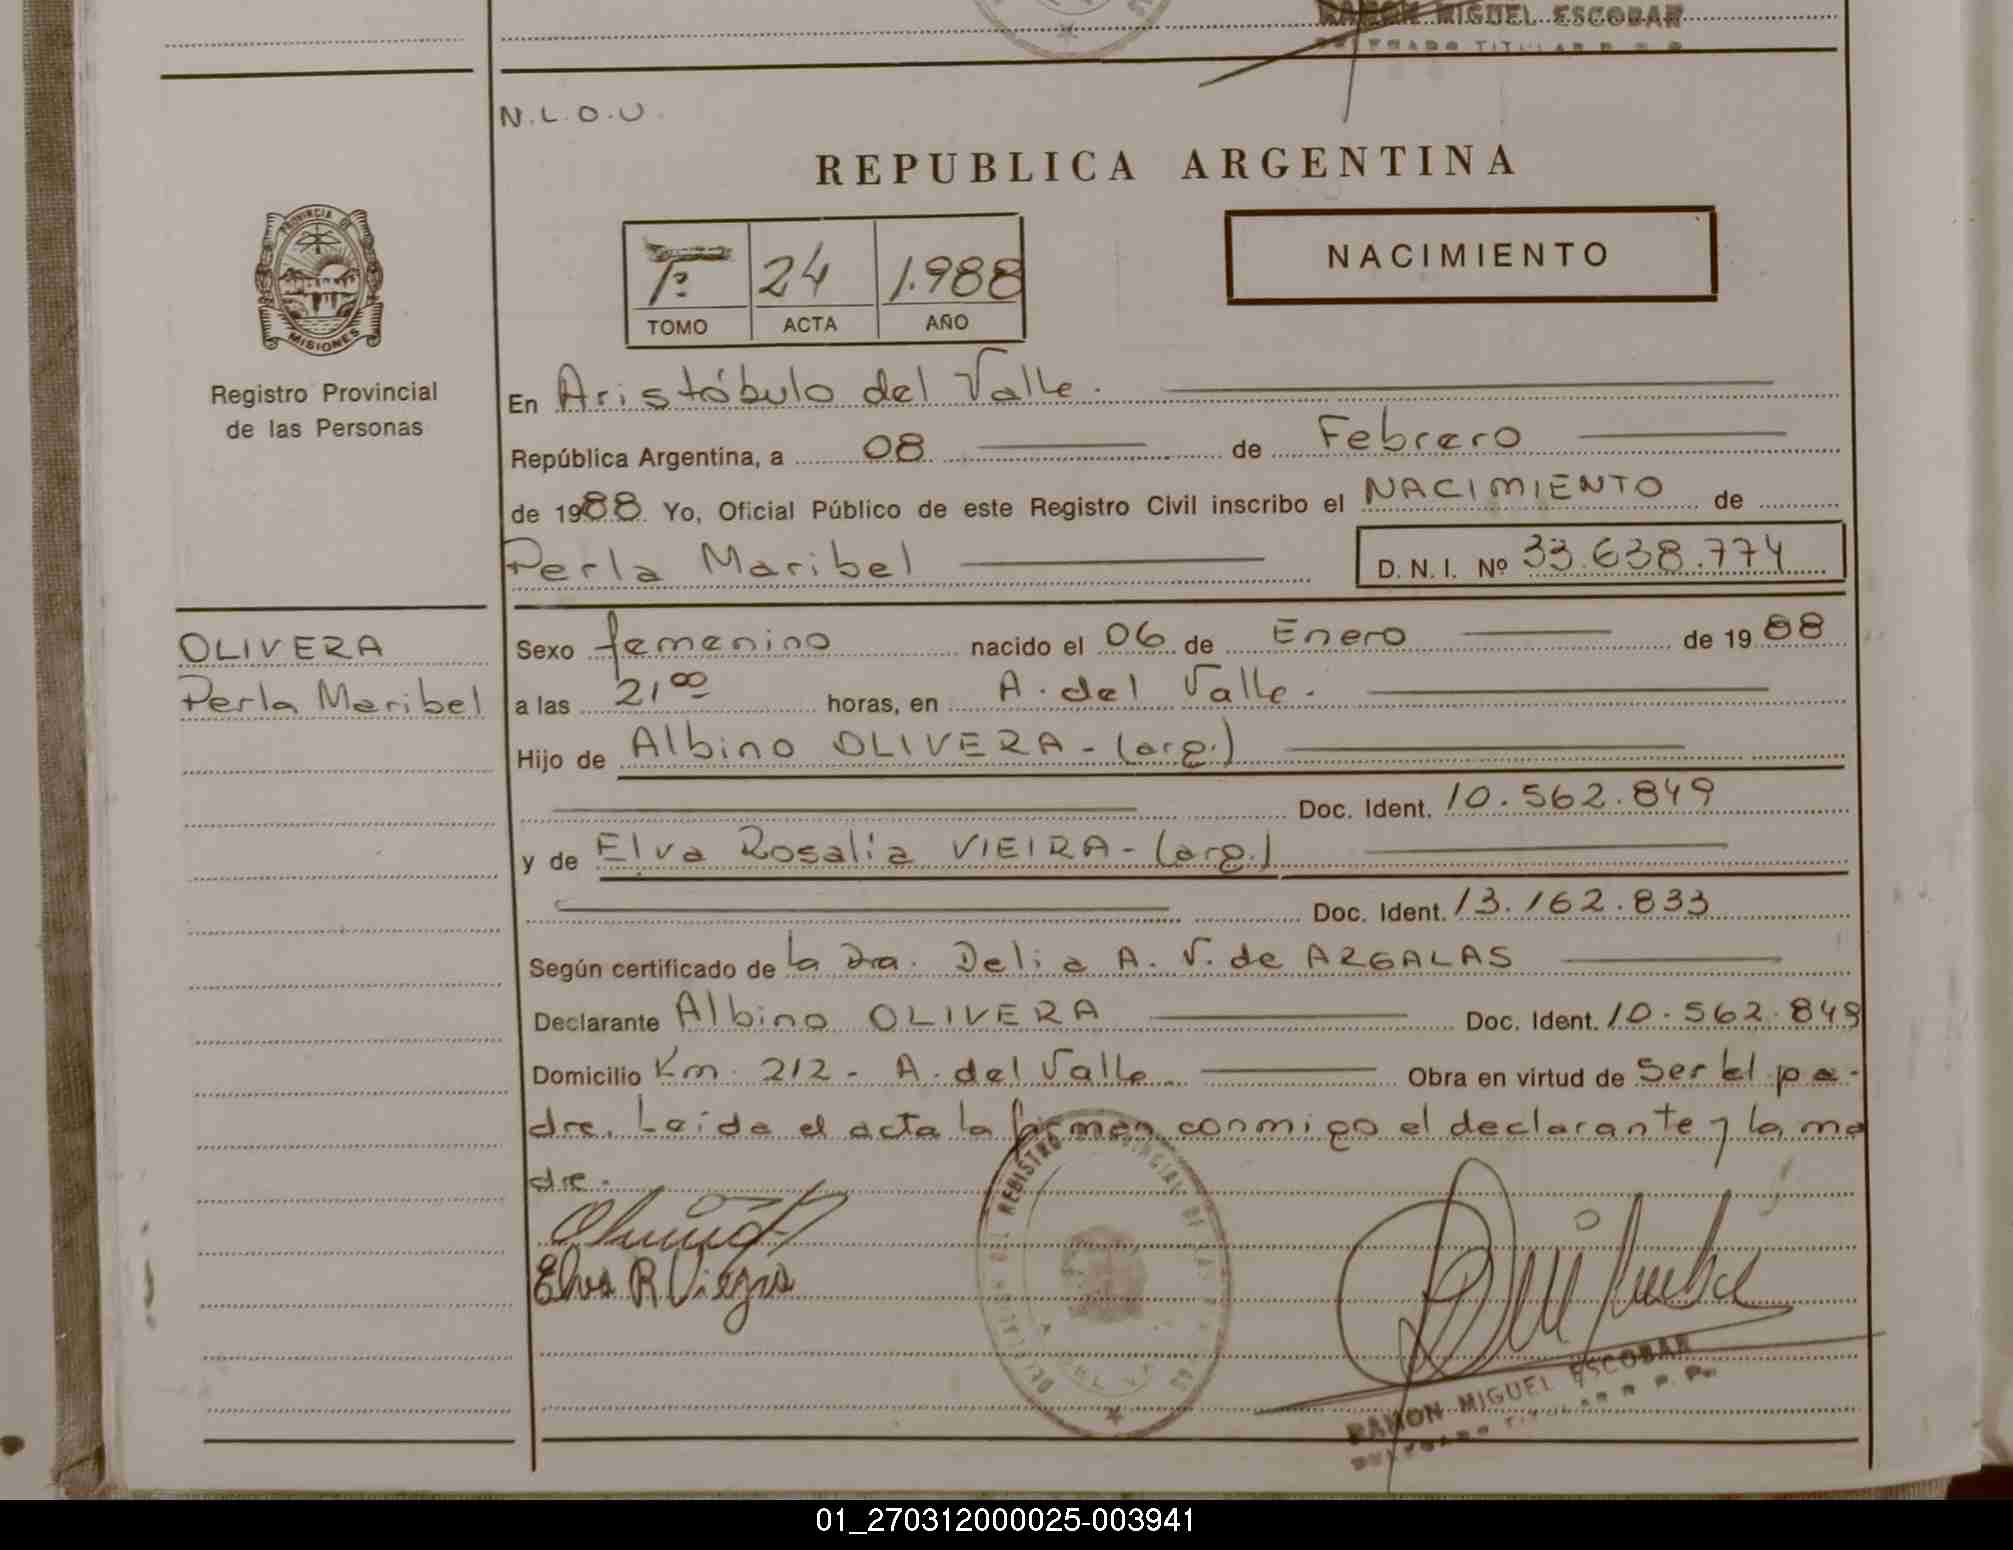 RAMON MIGUEL ESCOBAR
N.L.O.U.
REPUBLICA ARGENTINA
NACIMIENTO
Tº 24 1.988
TOMO ACTA AÑO
PROVINCIA DE
MISIONES
Registro Provincial
de las Personas
En Aristóbulo del Valle.
República Argentina, a 08 de Febrero
de 1988 Yo, Oficial Público de este Registro Civil inscribo el NACIMIENTO de
Perla Maribel D.N.I. Nº 33.638.774
OLIVERA
Perla Maribel
Sexo femenino nacido el 06 de Enero de 1988
a las 21⁰⁰ horas, en A. del Valle.
Hijo de Albino OLIVERA - (arg.)
Doc. Ident. 10.562.849
y de Elva Rosalia VIEIRA - (arg.)
Doc. Ident. 13.162.833
Según certificado de la Dra. Delia A. V. de ARGALAS
Declarante Albino OLIVERA Doc. Ident. 10.562.849
Domicilio Km. 212 - A. del Valle Obra en virtud de Ser el pa-
dre. Leída el acta la firman conmigo el declarante y la ma
dre.
Elva R
REGISTRO PROVINCIAL DE LAS
RAMON MIGUEL ESCOBAR
01_270312000025-003941